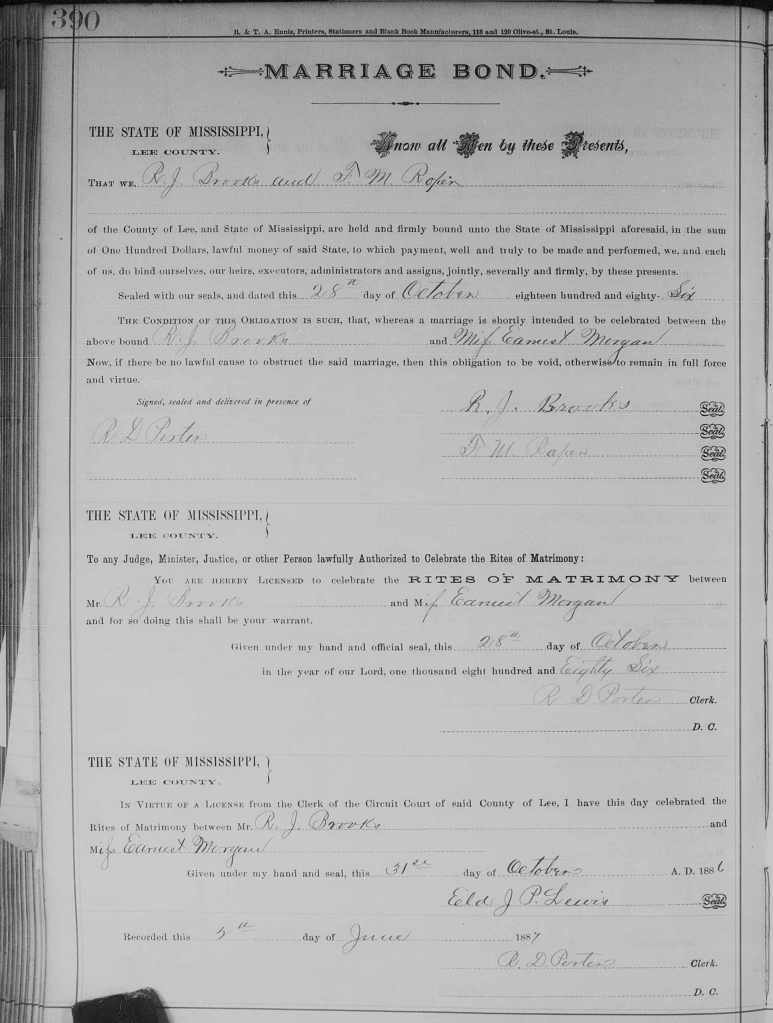 390
R. & T. A. Ennis, Printers, Stationers and Blank Book Manufacturers, 118 and 120 Olive-st., St. Louis.
MARRIAGE BOND.
THE STATE OF MISSISSIPPI,
LEE COUNTY.
Know all Men by these Presents,
THAT WE, R. J. Brooks and F. M. Roper
of the County of Lee, and State of Mississippi, are held and firmly bound unto the State of Mississippi aforesaid, in the sum
of One Hundred Dollars, lawful money of said State, to which payment, well and truly to be made and performed, we, and each
of us, do bind ourselves, our heirs, executors, administrators and assigns, jointly, severally and firmly, by these presents.
Sealed with our seals, and dated this 28th day of October eighteen hundred and eighty-Six
THE CONDITION OF THIS OBLIGATION IS SUCH, that, whereas a marriage is shortly intended to be celebrated between the
above bound R. J. Brooks and Miss Earnest Morgan
Now, if there be no lawful cause to obstruct the said marriage, then this obligation to be void, otherwise to remain in full force
and virtue.
Signed, sealed and delivered in presence of
R. J. Brooks Seal.
R D Porter Seal.
F. M. Roper Seal.
Seal.
THE STATE OF MISSISSIPPI,
LEE COUNTY.
To any Judge, Minister, Justice, or other Person lawfully Authorized to Celebrate the Rites of Matrimony:
YOU ARE HEREBY LICENSED to celebrate the RITES OF MATRIMONY between
Mr. R. J. Brooks and Miss Earnest Morgan
and for so doing this shall be your warrant.
Given under my hand and official seal, this 28th day of October
in the year of our Lord, one thousand eight hundred and Eighty Six
R D Porter Clerk.
D. C.
THE STATE OF MISSISSIPPI,
LEE COUNTY.
IN VIRTUE OF A LICENSE from the Clerk of the Circuit Court of said County of Lee, I have this day celebrated the
Rites of Matrimony between Mr. R. J. Brooks and
Miss Earnest Morgan
Given under my hand and seal, this 31st day of October A. D. 1886
Eld J. P. Lewis Seal.
Recorded this day of June 1887
R. D Porter Clerk.
D. C.